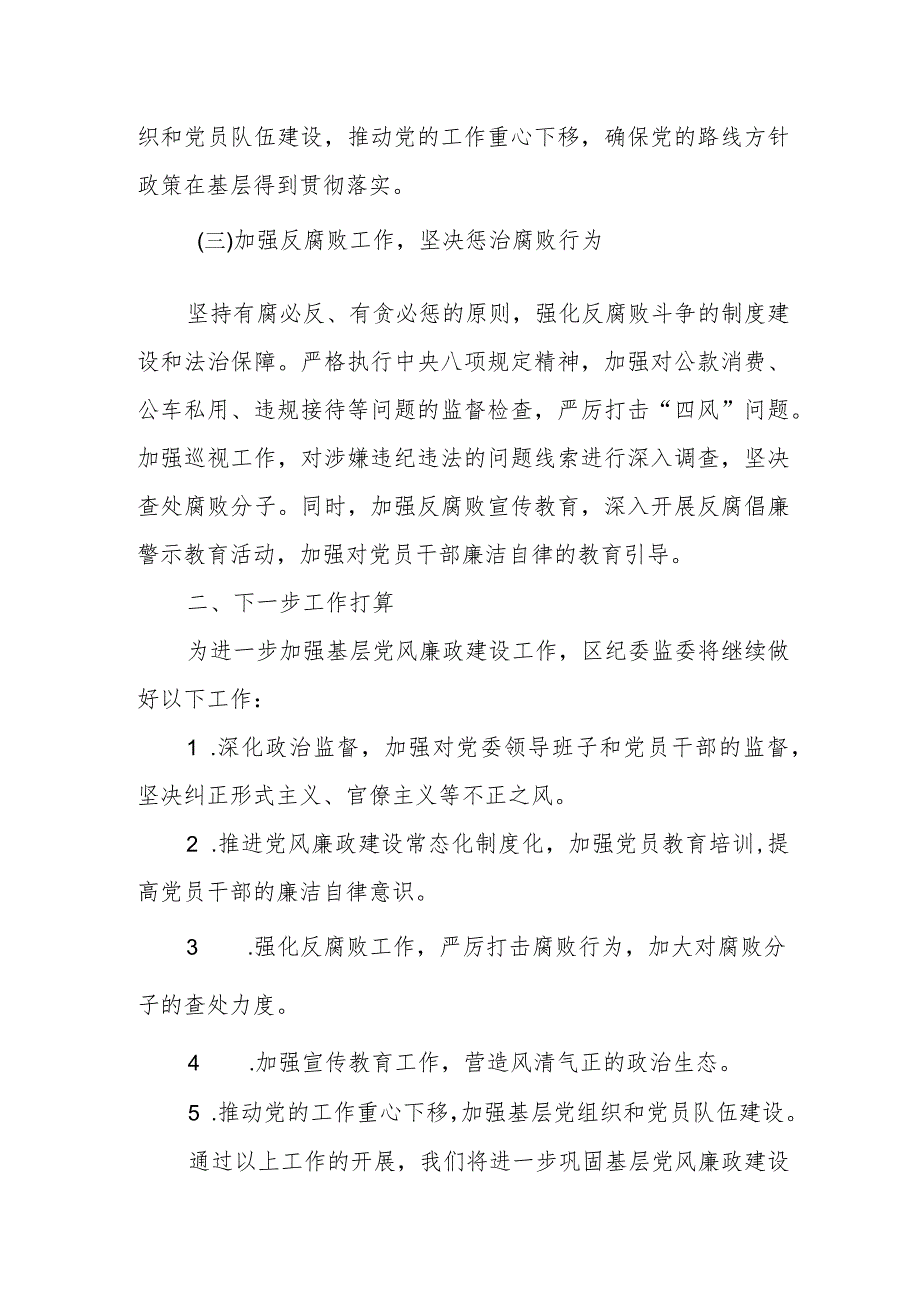 织和党员队伍建设，推动党的工作重心下移，确保党的路线方针
政策在基层得到贯彻落实。
(三)加强反腐败工作，坚决惩治腐败行为
坚持有腐必反、有贪必惩的原则，强化反腐败斗争的制度建
设和法治保障。严格执行中央八项规定精神，加强对公款消费、
公车私用、违规接待等问题的监督检查，严厉打击“四风”问题。
加强巡视工作，对涉嫌违纪违法的问题线索进行深入调查，坚决
查处腐败分子。同时，加强反腐败宣传教育，深入开展反腐倡廉
警示教育活动，加强对党员干部廉洁自律的教育引导。
二、下一步工作打算
为进一步加强基层党风廉政建设工作，区纪委监委将继续做
好以下工作：
1 .深化政治监督，加强对党委领导班子和党员干部的监督，
坚决纠正形式主义、官僚主义等不正之风。
2 .推进党风廉政建设常态化制度化，加强党员教育培训,提
高党员干部的廉洁自律意识。
3 .强化反腐败工作，严厉打击腐败行为，加大对腐败分
子的查处力度。
4 .加强宣传教育工作，营造风清气正的政治生态。
5 .推动党的工作重心下移,加强基层党组织和党员队伍建设。
通过以上工作的开展，我们将进一步巩固基层党风廉政建设